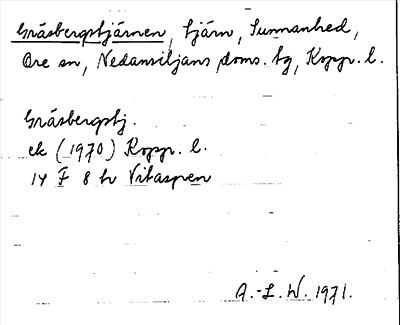 Gråsbergstjärnen, tjärn, Sunnanhed,
Ore sn, Nedansiljans doms. tg, Kopp. l.
Gråsbergstj.
ek (1970) Kopp. l.
14 F 8 h Vitaspen
A.-L. W. 1971.